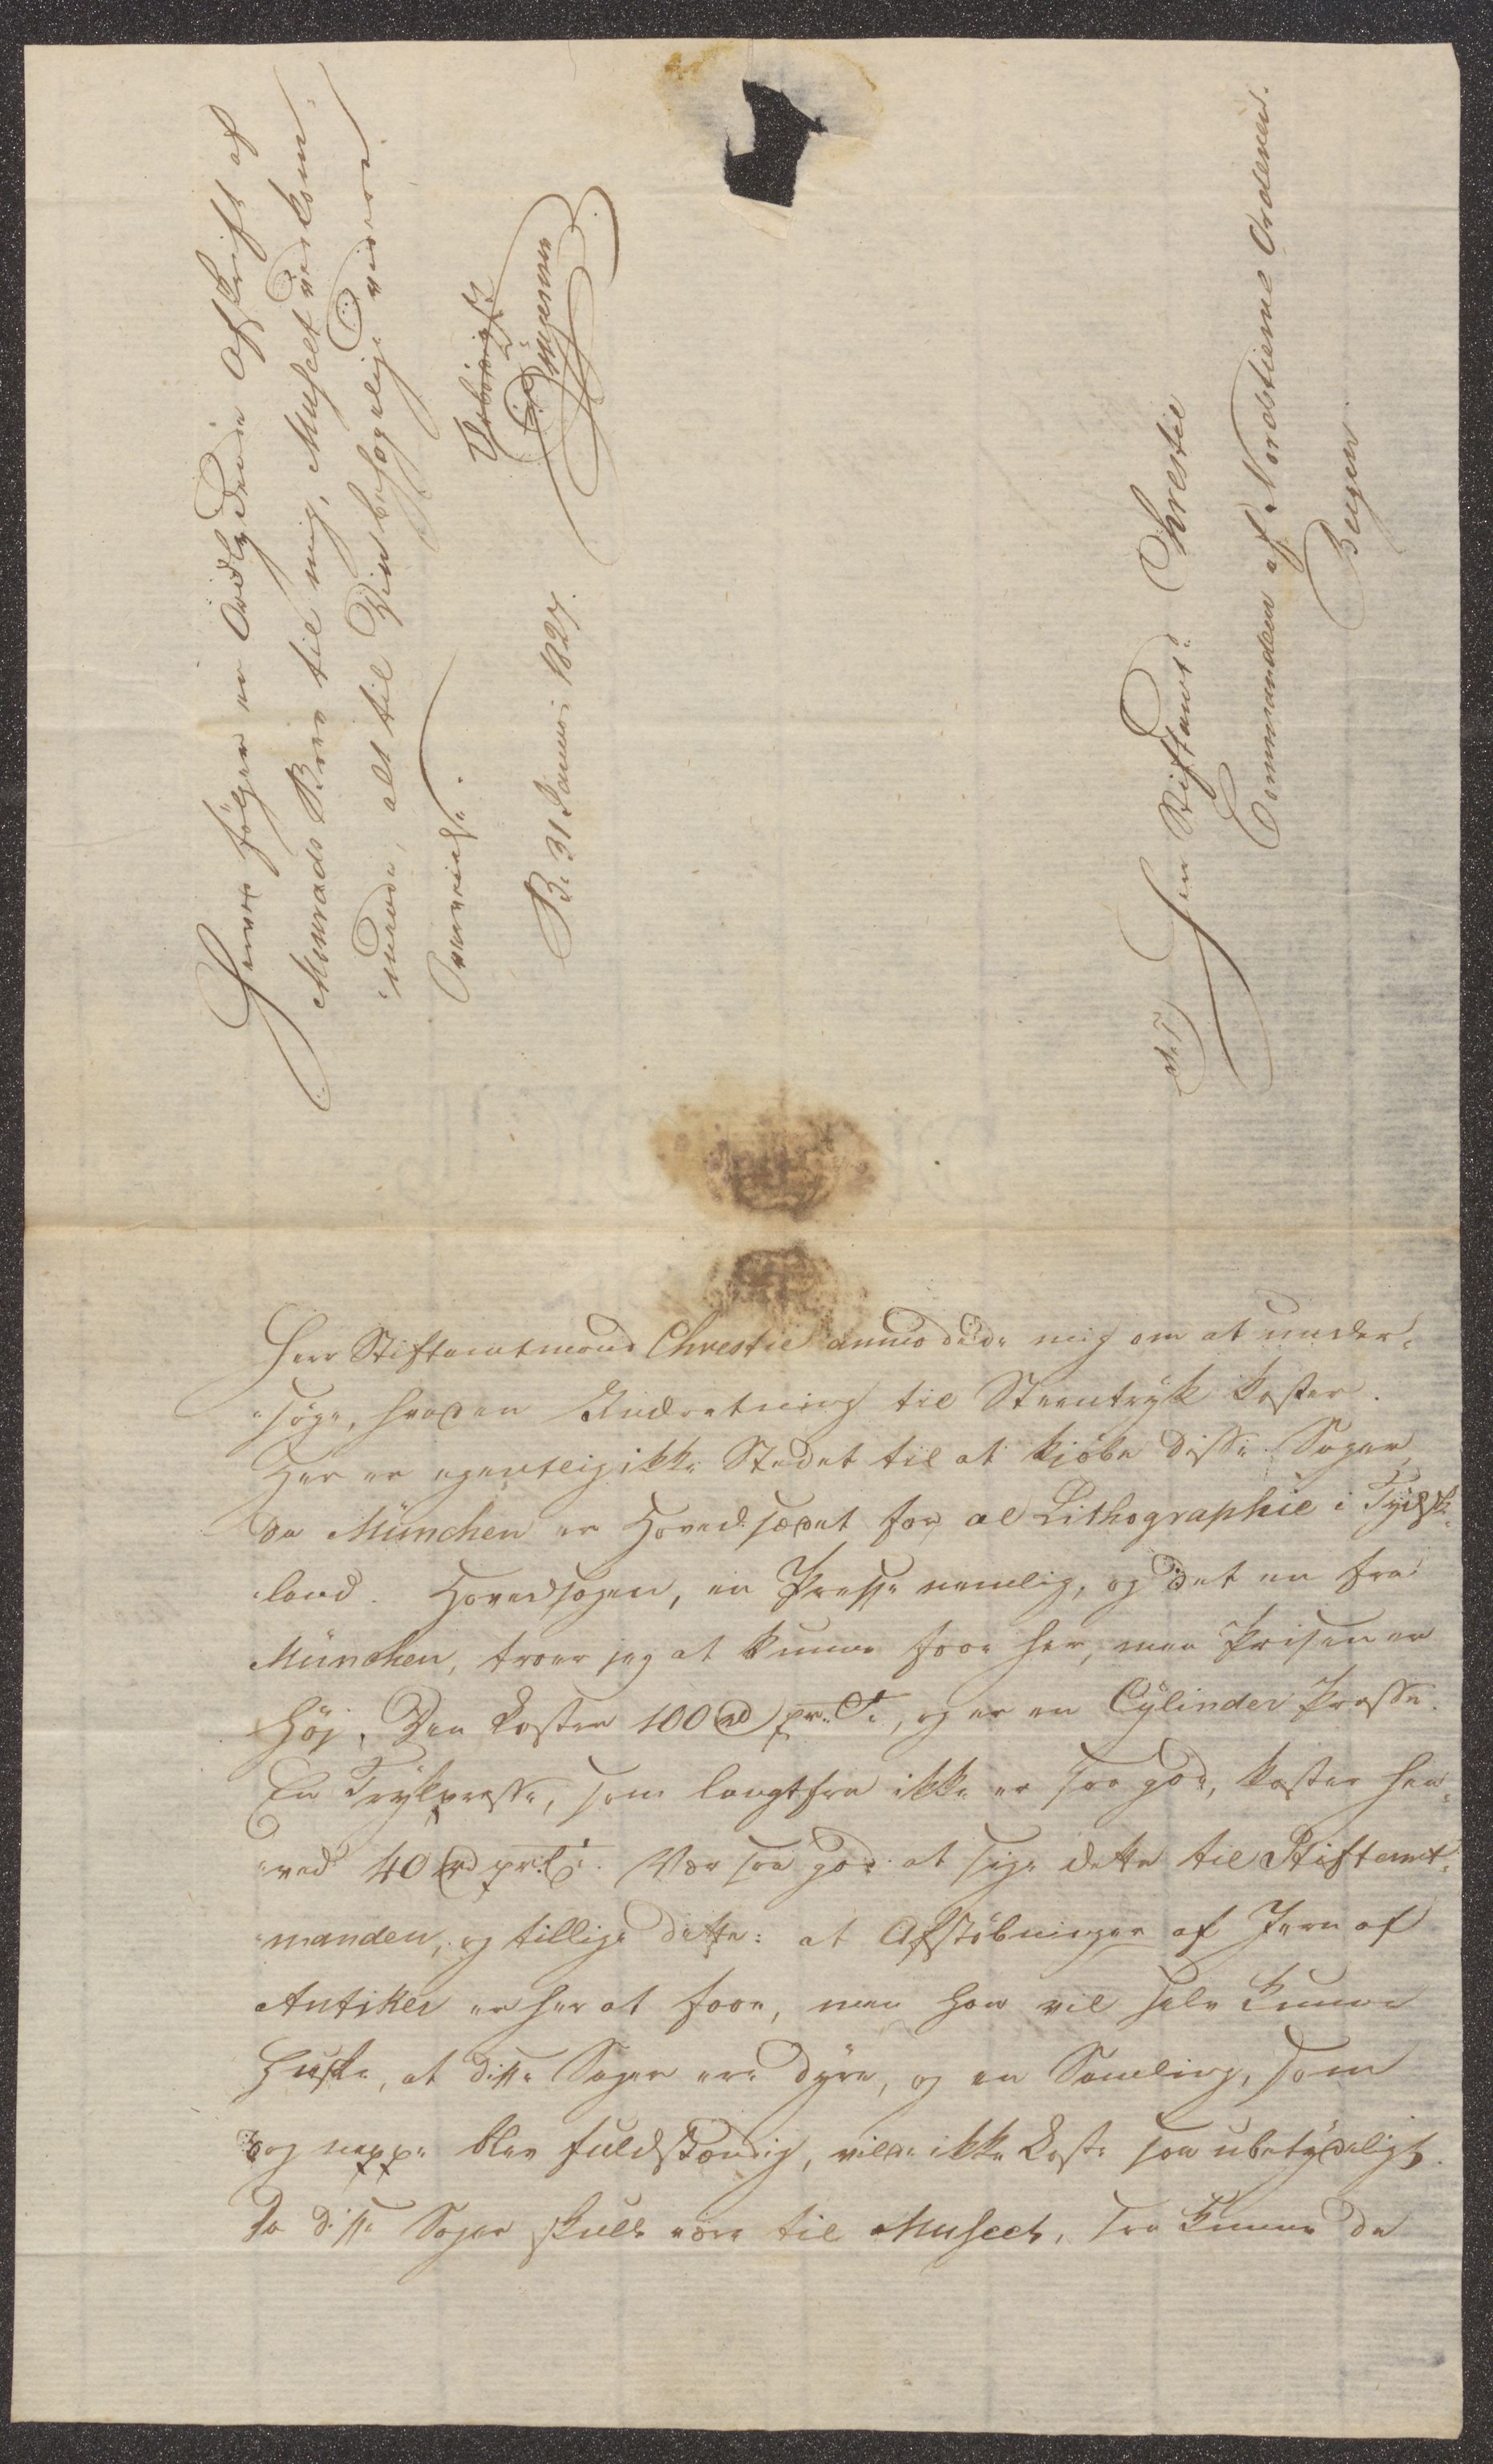 Herved følger en Ordlydende Afskrift af
Konrads Brev til mig, Museet vedkom-
mende, alt til Din behagelig videre
Overveielse.
B. 31 Januar 1827.
Ærbødigst
S. T.
Herr Stiftamtmd Chrestie
Commandeur af Nordstierne Ordenen.
Bergen
Herr Stiftamtmand Chrestie anmodede mig om at under-
søge, hvad en Indretning til Steentryk koster.
Her er egentlig ikke Stedet til at kjøbe disse Sager,
da München er Hovedsædet for al Lithographie i Tydsk-
land. Hovedsagen, en Presse nemlig, og det en fra
München, troer jeg at kunne faae her, men Prisen er
høj. Den koster 100 rd pr. C., og er en Cylinder Presse.
En Trykpresse, som langtfra ikke er saa god, koster hen-
ved 40 rd pr. C. Vær saa god at sige dette til Stiftamt-
manden, og tillige dette: at Afstøbninger af Jern af
Antiker er her at faae, men han vil selv kunne
huske, at disse Sager ere dyre, og en Samling, som
dog neppe blev fuldstændig, vilde ikke koste saa ubetydeligt.
Da disse Sager skulle være til Museet, saa kunne de